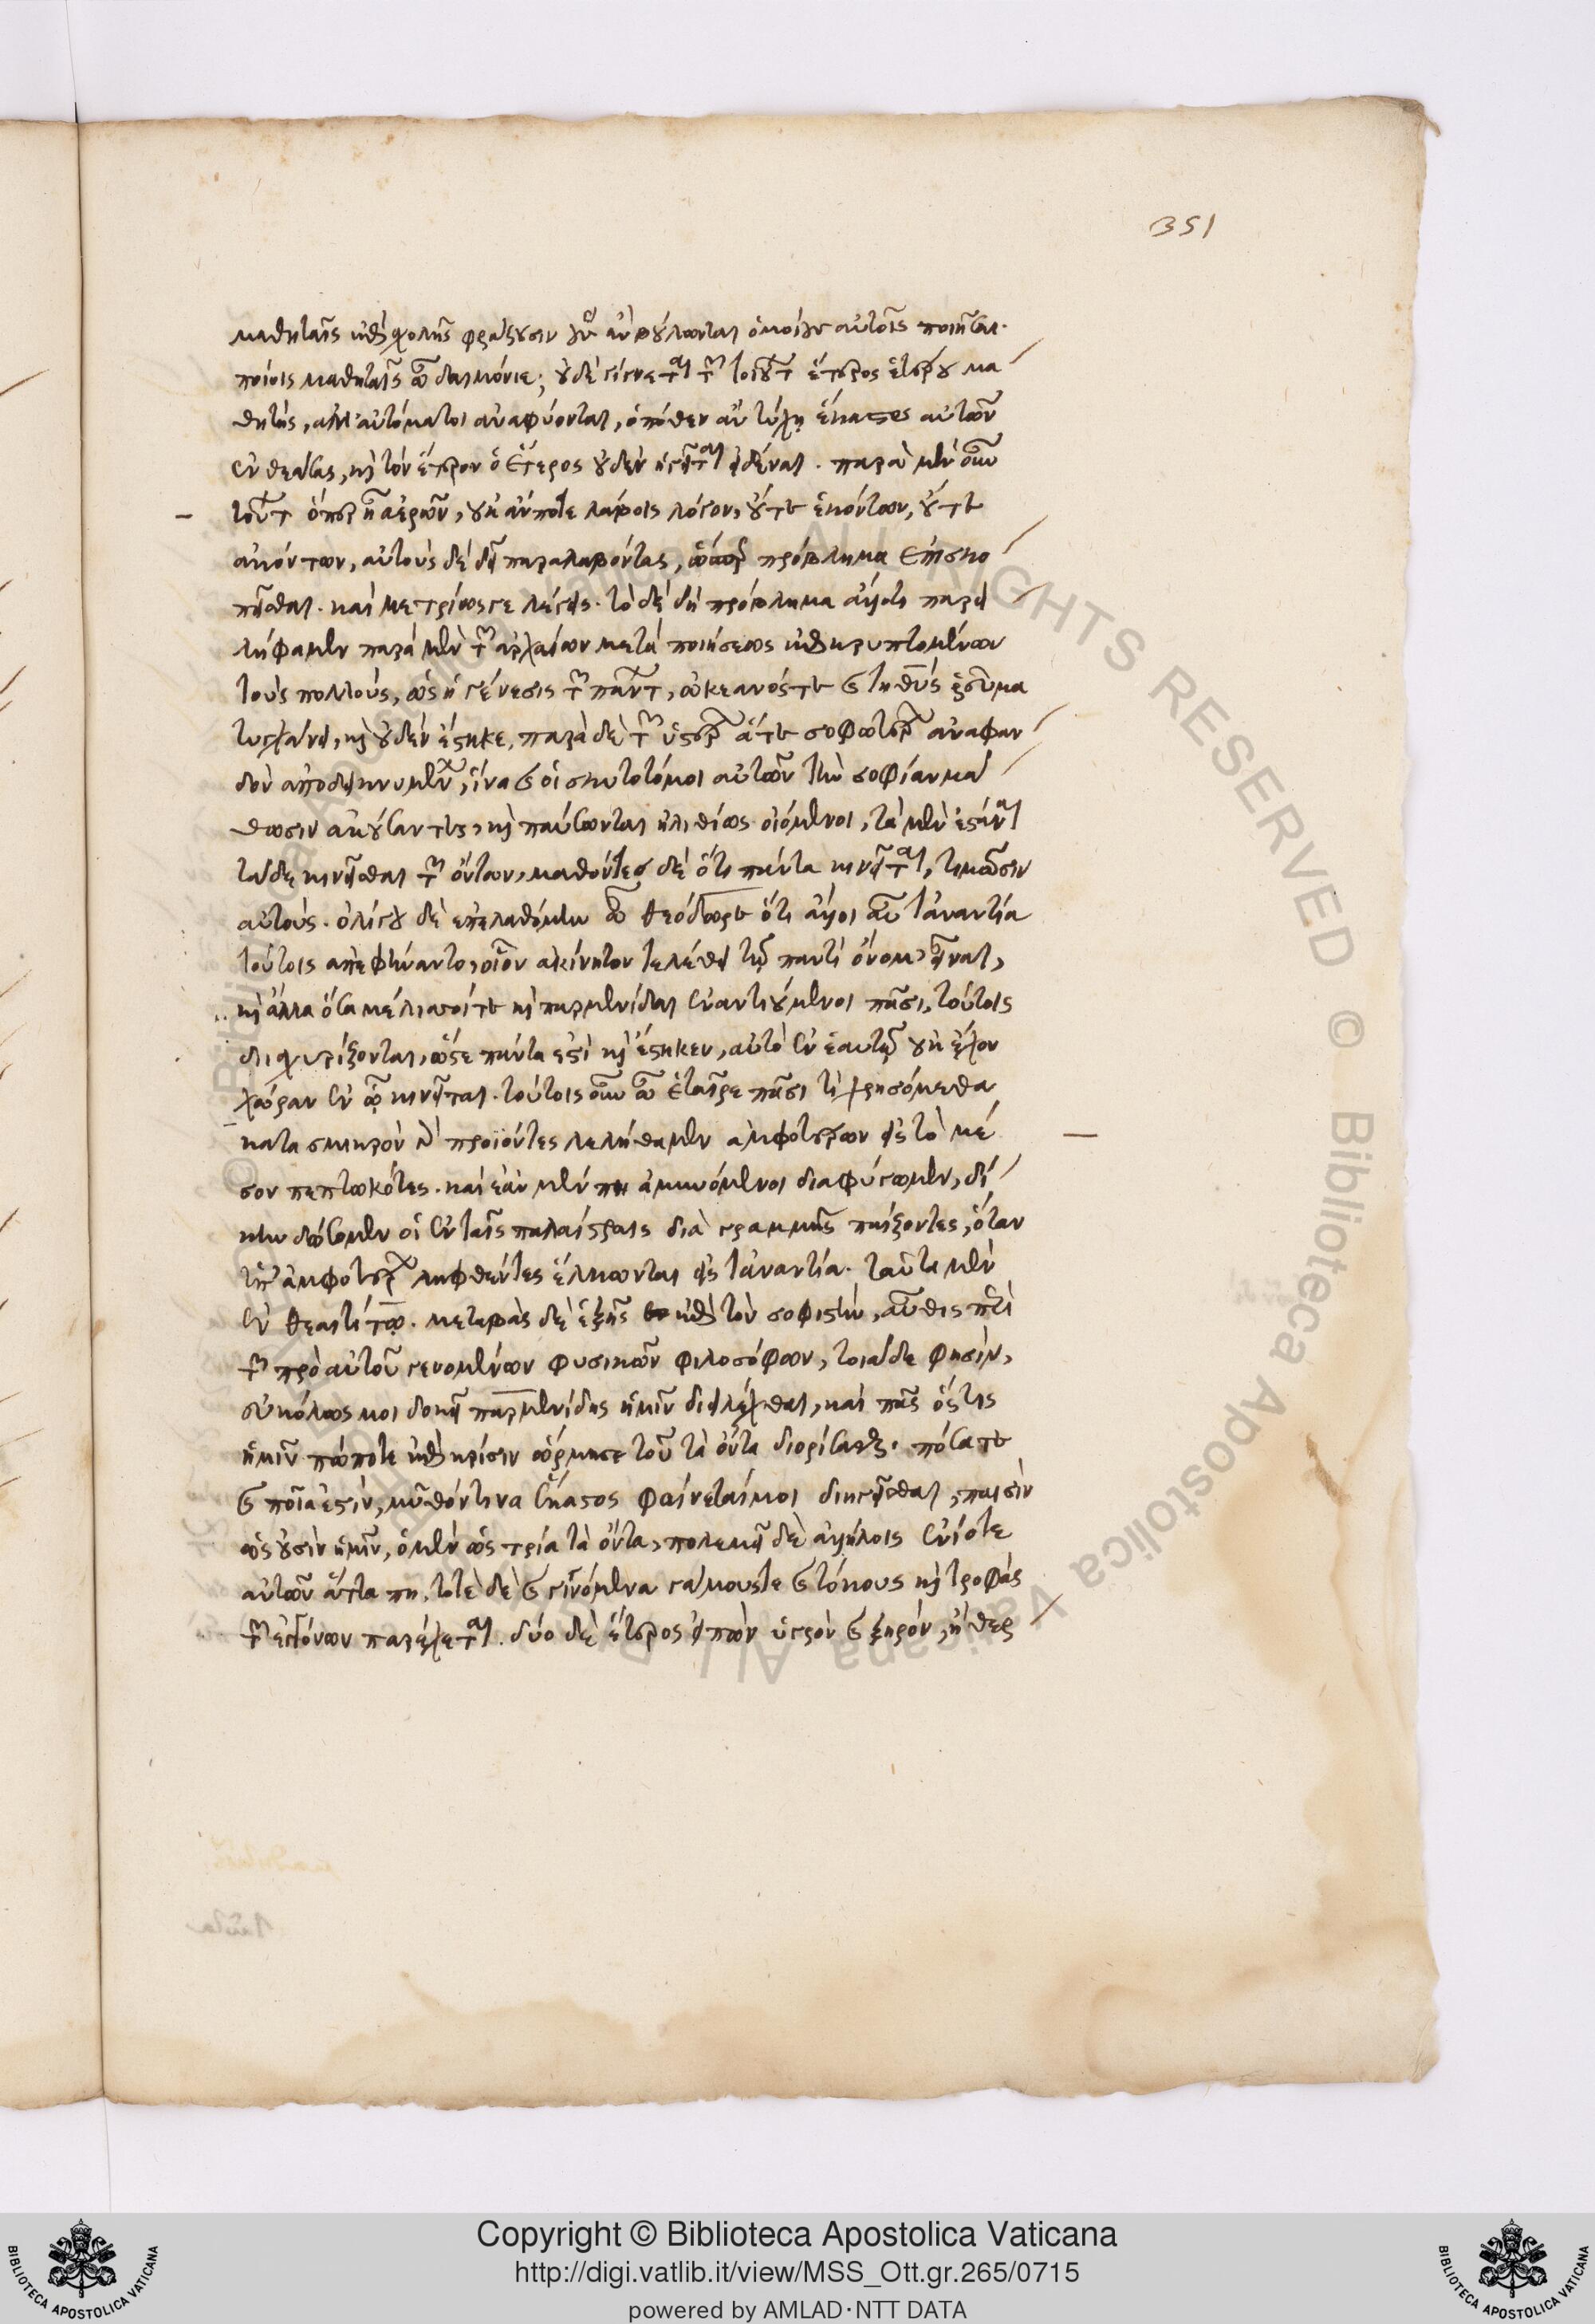 351
μαθηταῖς ἐπὶ σχολῆς φράζουσιν οὓς ἂν βούλωνται ὁμοίους αὐτοῖς ποιῆσαι.
ποίοις μαθηταῖς ὦ δαιμόνιε; οὐδὲ γίγνεται τῶν τοιούτων ἕτερος ἑτέρου μα
θητὴς, ἀλλ' αὐτόματοι ἀναφύονται, ὁπόθεν ἂν τύχῃ ἕκαστος αὐτῶν
ἐνθεάσας, καὶ τὸν ἕτερον ὁ ἕτερος οὐδὲν ἡγεῖται εἰδέναι. παρὰ μὲν οὖν
τούτων ὅπερ ᾖα ἐρῶν, οὐκ ἄν ποτε λάβοις λόγον, οὔτε ἑκόντων, οὔτε
ἀκόντων, αὐτοὺς δὲ δεῖ παραλαβόντας, ὥσπερ πρόβλημα ἐπισκο
πεῖσθαι. καὶ μετρίως γε λέγεις. τὸ δὲ δὴ πρόβλημα ἄλλο τι παρει
λήφαμεν παρὰ μὲν τῶν ἀρχαίων μετὰ ποιήσεως ἐπικρυπτομένων
τοὺς πολλοὺς, ὡς ἡ γένεσις τῶν πάντων, ὠκεανός τε καὶ τηθὺς ῥεύματα
τυγχάνει, καὶ οὐδὲν ἕστηκε, παρὰ δὲ τῶν ὑστέρων ἅτε σοφωτέρων ἀναφαν
δὸν ἀποδεικνυμένων, ἵνα καὶ οἱ σκυτοτόμοι αὐτῶν τὴν σοφίαν μά
θωσιν ἀκούσαντες, καὶ παύσωνται ἠλιθίως οἰόμενοι, τὰ μὲν ἑστάναι
τὰ δὲ κινεῖσθαι τῶν ὄντων, μαθόντες δὲ ὅτι πάντα κινεῖται, τιμῶσιν
αὐτούς. ὀλίγου δὲ ἐπελαθόμην ὦ θεόδωρε ὅτι ἄλλοι αὖ τἀναντία
τούτοις ἀπεφήναντο, οἷον ἀκίνητον τελέθει τῷ παντὶ ὄνομ' εἶναι,
καὶ ἄλλα ὅσα μέλισσοί τε καὶ παρμενίδαι ἐναντιούμενοι πᾶσι, τούτοις
διισχυρίζονται, ὥς τε πάντα ἐστὶ καὶ ἕστηκεν, αὐτὸ ἐν ἑαυτῷ οὐκ ἔχον
χώραν ἐν ᾧ κινεῖται. τούτοις οὖν ὦ ἑταῖρε πᾶσι τί χρησόμεθα
κατὰ σμικρὸν γὰρ προϊόντες λελήθαμεν ἀμφοτέρων εἰς τὸ μέ
σον πεπτωκότες. καὶ ἐὰν μέν πῃ ἀμυνόμενοι διαφύγωμεν, δί
κην δώσομεν οἱ ἐν ταῖς παλαίστραις διὰ γραμμῆς παίζοντες, ὅταν
ὑπ' ἀμφοτέρων ληφθέντες ἕλκωνται εἰς τἀναντία. ταῦτα μὲν
ἐν θεαιτήτῳ. μεταβὰς δὲ ἑξῆς ἐπὶ τὸν σοφιστὴν, αὖθις περὶ
τῶν πρὸ αὐτοῦ γενομένων φυσικῶν φιλοσόφων, τοιάδε φησίν,
εὐκόλως μοι δοκεῖ παρμενίδης ἡμῖν διειλέχθαι, καὶ πᾶς ὅστις
ἡμῖν πώποτε ἐπὶ κρίσιν ὥρμησε τοῦ τὰ ὄντα διορίσασθαι. πόσα τε
καὶ ποῖά ἐστιν, μῦθόν τινα ἕκαστος φαίνεταί μοι διηγεῖσθαι, παισὶν
ὡς οὖσιν ἡμῖν, ὁ μὲν ὡς τρία τὰ ὄντα, πολεμεῖ δὲ ἀλλήλοις ἐνίοτε
αὐτῶν ἄττα πῃ, τοτὲ δὲ καὶ γινόμενα γάμους τε καὶ τόκους καὶ τροφὰς
τῶν ἐκγόνων παρέχεται. δύο δὲ ἕτερος εἰπὼν ὑγρὸν καὶ ξηρόν, ἢ θερ
Copyright © Biblioteca Apostolica Vaticana
http://digi.vatlib.it/view/MSS_Ott.gr.265/0715
powered by AMLAD·NTT DATA
BIBLIOTECA APOSTOLICA VATICANA
BIBLIOTECA APOSTOLICA VATICANA
© Biblioteca Apostolica Vaticana ALL RIGHTS RESERVED